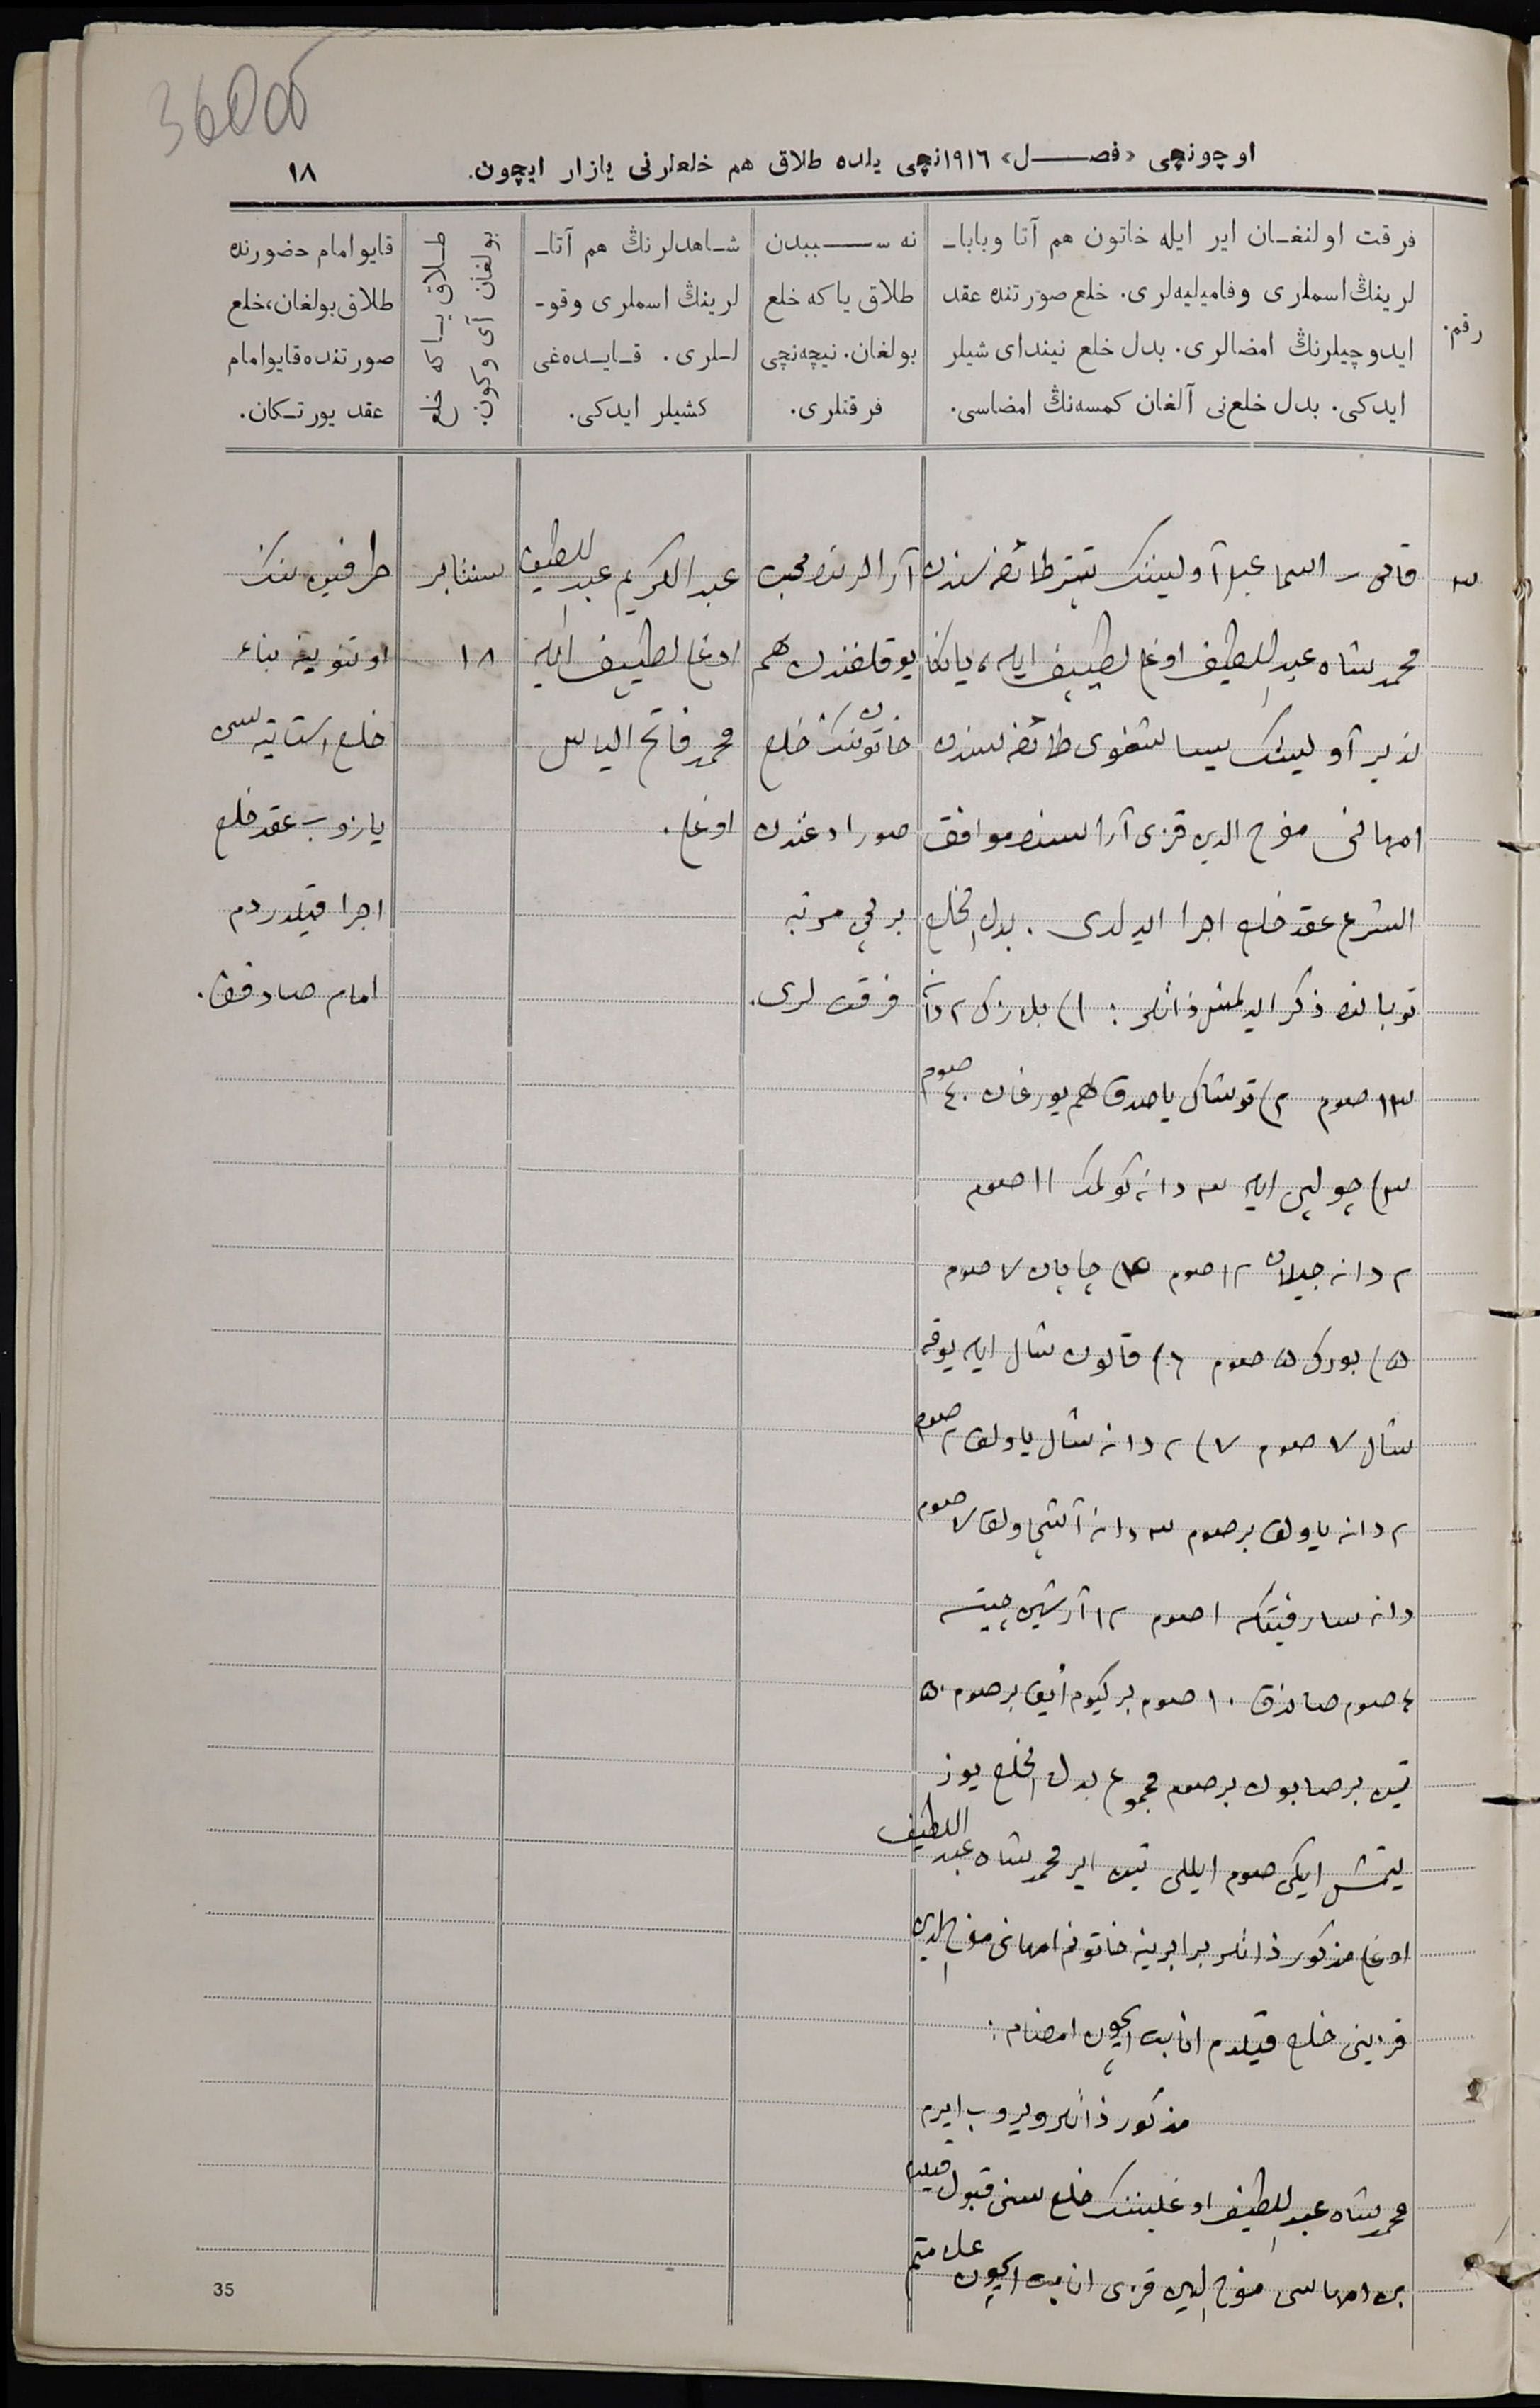 36000
اوچونچی «فصل» ١٩١٦نچی یلده طلاق هم خلعلرنی یازار ایچون.
١٨
رقم.
فرقت اولنغان ایر ایله خاتون هم آتا وبابا-
لرینڭ اسملری وفامیلیه‌لری. خلع صورتنده عقد
ایدوچیلرنڭ امضالری. بدل خلع نیندای شیلر
ایدکی. بدل خلع‌نی آلغان کمسه‌نڭ امضاسی.
نه سببدن
طلاق یا که خلع
بولغان. نیچه‌نچی
فرقتلری.
شاهدلرنڭ هم آتا-
لرینڭ اسملری وقو-
لری. قایده‌غی
کشیلر ایدکی.
طلاق یا که خلع
بولغان آی وکون.
قایو امام حضورنده
طلاق بولغان، خلع
صورتنده قایو امام
عقد یورتکان.
٣
آولیننک تپتر طائفه سندن
محمدشاه عبداللطیف اوغلی لطیپف ایله، یانکا
آولیننک طائفه سندن
مفرح الدین قزی آراسنده موافق
الشرع عقد خلع اجرا ایدلدی. بدل الخلع
توبانده ذکر ایدلمش ذاتلر: ١) بلازک ٢ دانه
١٣ صوم ٢) توشاک یاصدق هم یورغان ٤٠ صوم
٣) ایله ٣ دانه کولمک ١١ صوم
٢ دانه جیلان ١٢ صوم ٤) چاپان ٧ صوم
٥) بورک ٥ صوم ٦) قالون شال ایله یوقه
شال ٧ صوم ٧) ٢ دانه شال یاولق ٢ صوم
٢ دانه یاولق برصوم ٣ دانه آشیاولق ٧ صوم
دانه ١ صوم ١٢ آرشین چیت
٤ صوم صاندق ١٠ صوم بر کیوم ایق برصوم ٥٠
تین بر صابون برصوم مجموع بدل الخلع یوز
یتمش ایکی صوم ایللی تین ایر محمدشاه عبداللطیف
اوغلی مذکور ذاتلر برابرینه خاتونم مفرح الدین
قزینی خلع قیلدم اثابت ایچون امضام:
مذکور ذاتلر ویروب ایرم
محمدشاه عبداللطیف اوغلیننک خلع سنی قبول
مفرح الدین قزی اثابت ایچون علامتم
آرالرنده محبت
یوقلغندن هم
خاتوننک خلع
صوراوغندن
برنچی مرتبه
فرقت لری.
عبدالکریم عبداللطیف
اوغلی لطیپف ایله
محمد فاتح الیاس
اوغلی.
سنتابر
١٨
طرفین ننک
اوتنوینه بناء
خلع
یازوب عقد خلع
اجرا قیلدردم
امام صادقف.
35